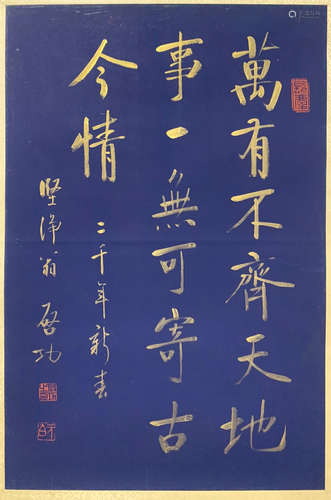 萬有不齊天地
事一無可寄古
今情
二千年新春
堅淨翁 啓功